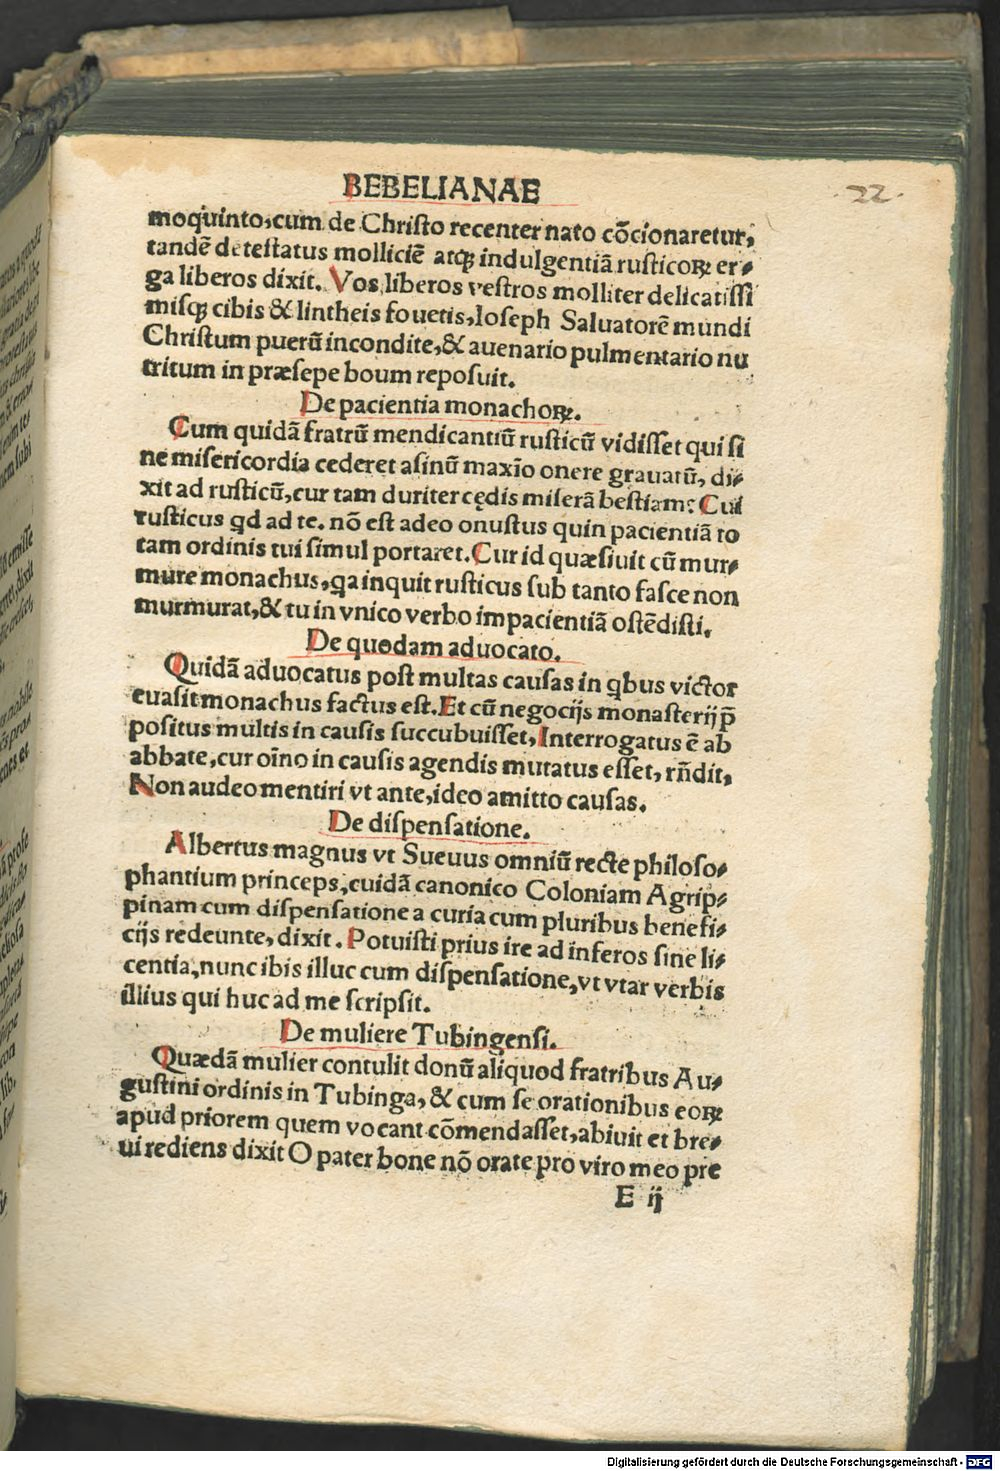 BEBELIANAE
22.
moquinto,cum de Christo recenter nato cōcionaretur,
tandē detestatus molliciē atqꝫ indulgentiā rusticoꝝ er⸗
ga liberos dixit. Vos liberos vestros molliter delicatissi
misqꝫ cibis & lintheis fouetis, Ioseph Saluatorē mundi
Christum puerū incondite,& auenario pulmentario nu
tritum in præsepe boum reposuit.
De pacientia monachoꝝ.
Cum quidā fratrū mendicantiū rusticū vidisset qui si
ne misericordia cederet asinū maxīo onere grauatū, di⸗
xit ad rusticū,cur tam duriter cędis miserā bestiam: Cui
rusticus qd ad te. nō est adeo onustus quin pacientiā to
tam ordinis tui simul portaret. Cur id quæsiuit cū mur⸗
mure monachus,qa inquit rusticus sub tanto fasce non
murmurat,& tu in vnico verbo impacientiā ostēdisti.
De quodam aduocato.
Quidā aduocatus post multas causas in qbus victor
euasit monachus factus est. Et cū negocijs monasterij p̄
positus multis in causis succubuisset, Interrogatus ē ab
abbate,cur oīno in causis agendis mutatus esset, rn̄dit,
Non audeo mentiri vt ante,ideo amitto causas.
De dispensatione.
Albertus magnus vt Sueuus omniū recte philoso⸗
phantium princeps,cuidā canonico Coloniam Agrip⸗
pinam cum dispensatione a curia cum pluribus benefi⸗
cijs redeunte, dixit. Potuisti prius ire ad inferos sine li⸗
centia,nunc ibis illuc cum dispensatione,vt vtar verbis
illius qui huc ad me scripsit.
De muliere Tubingensi.
Quædā mulier contulit donū aliquod fratribus Au⸗
gustini ordinis in Tubinga, & cum se orationibus eoꝝ
apud priorem quem vocant cōmendasset,abiuit et bre⸗
ui rediens dixit O pater bone nō orate pro viro meo pre
E ij
Digitalisierung gefördert durch die Deutsche Forschungsgemeinschaft - DFG